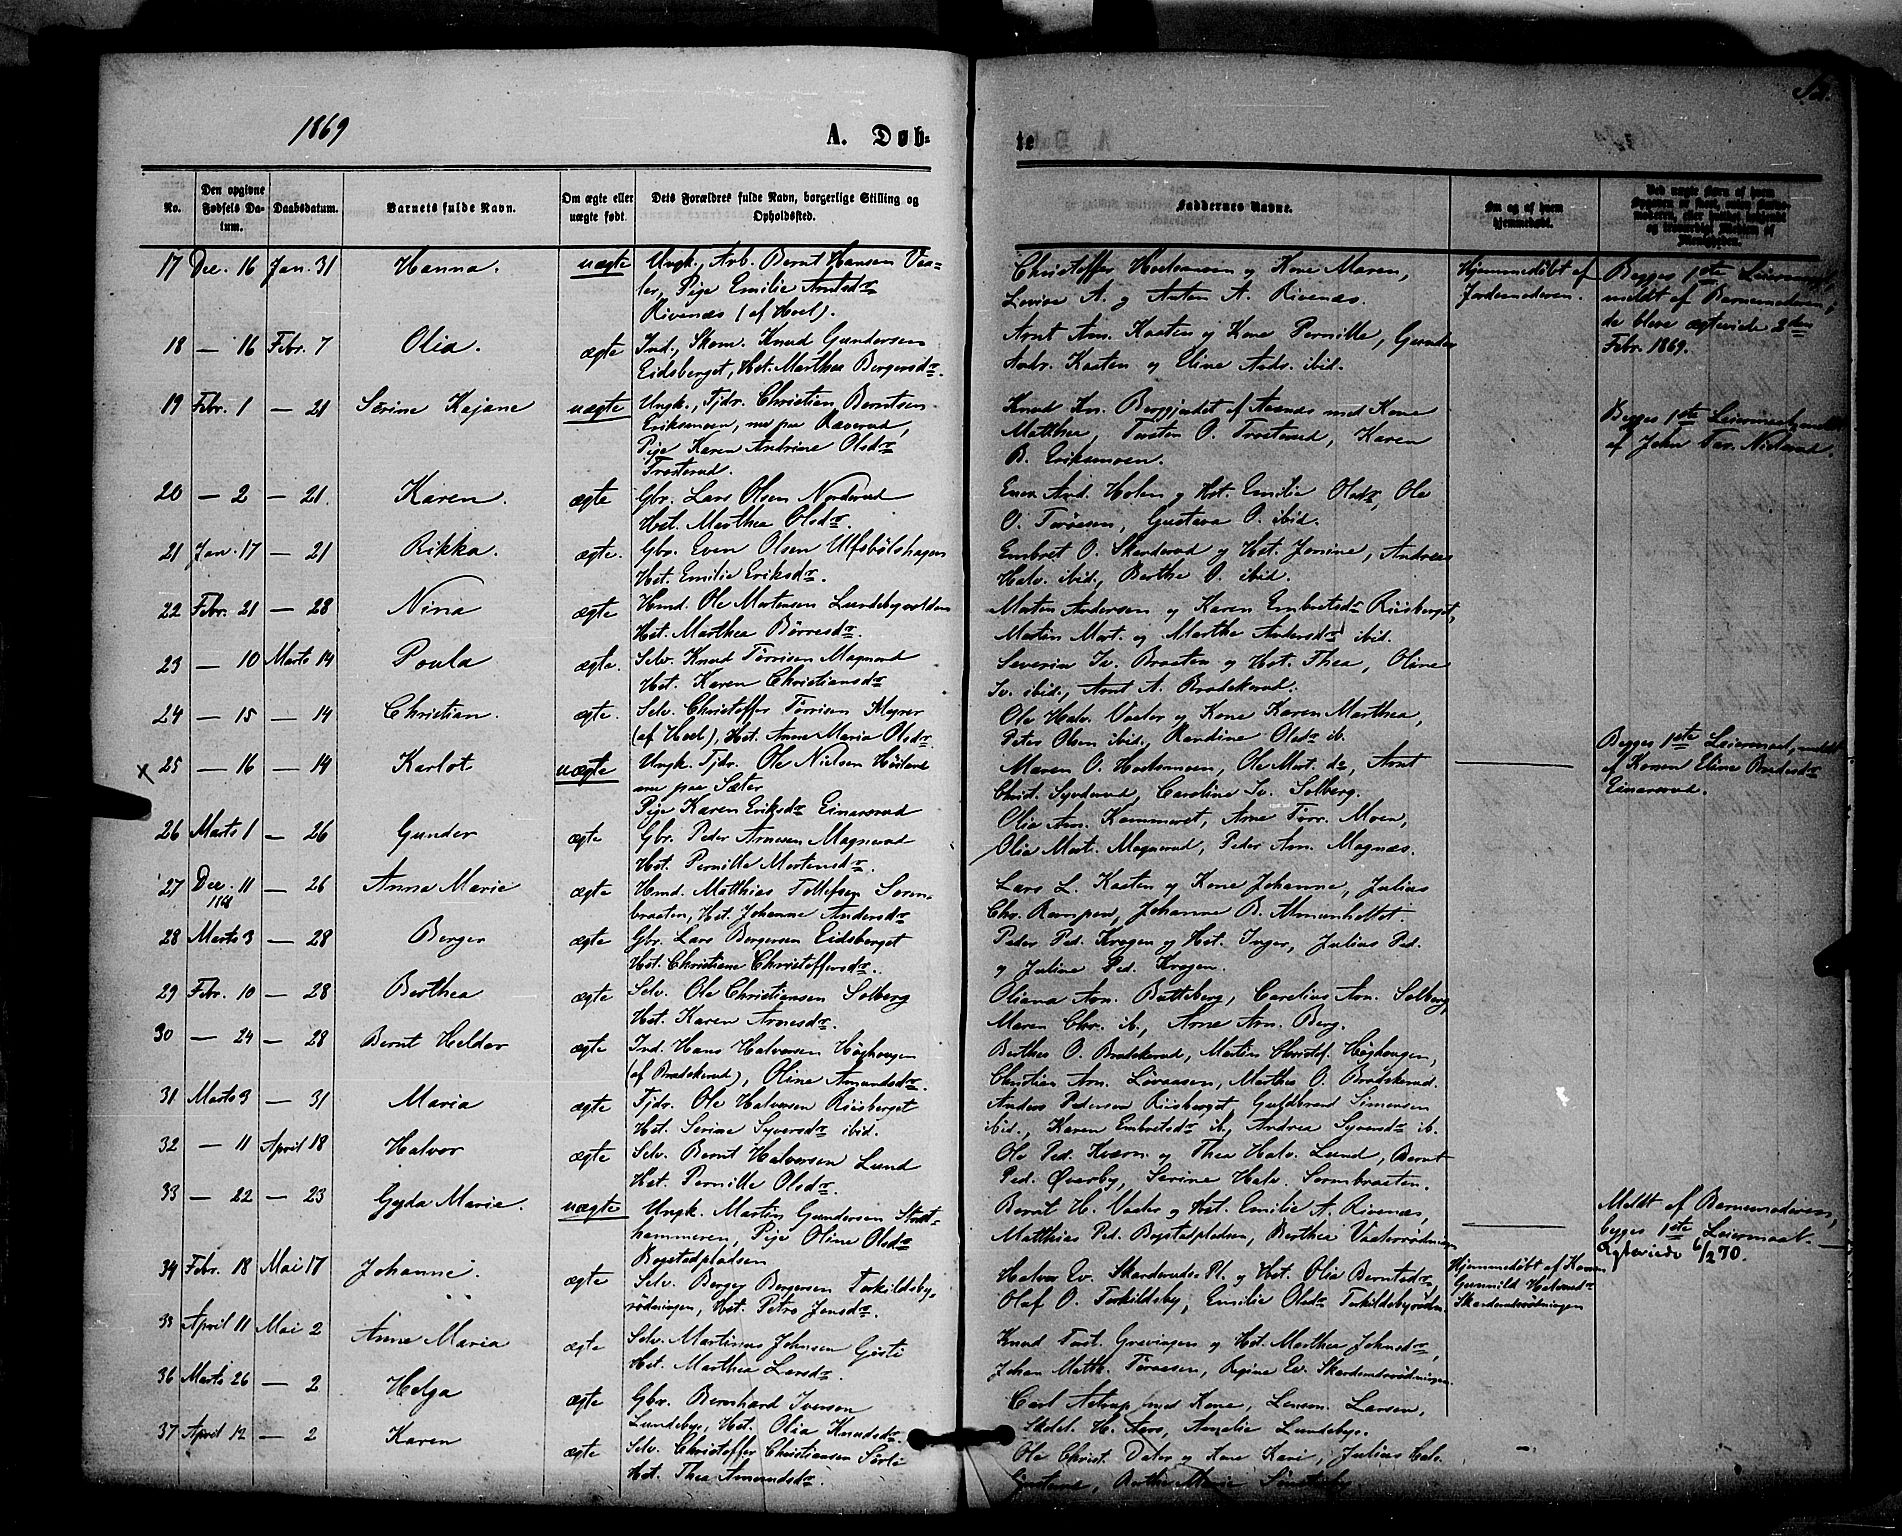 1869
A. Døb-
te
No.
Den opgivne Fødsels Datum.
Daabsdatum.
Barnets fulde Navn.
Om ægte eller uægte født.
Dets Forældres fulde Navn, borgerlige Stilling og Opholdssted.
Faddernes Navne.
Om og af hvem hjemmedøbt.
17 Dec. 16 Jan. 31 Hanna. uægte Ungk., Arb. Bernt Hansen Vaa-
ler, Pige Emilie Arntsdr
Rivenæs (af Hoel).
Christoffer Hoelsmoen og Kone Maren,
Lovise A. og Anton A. Rivenæs.
Hjemmedöbt af
Jordemoderen.
Begges 1ste Leiermaal,
meldt af Barnemoderen,
de bleve ægteviede 2den
Febr. 1869.
18 — 16 Febr. 7 Olia. ægte Ind., Skom. Knud Gundersen
Eidsberget, Hst. Marthea Bergersdr.
Arnt Arn. Kasten og Kone Pernille, Gunder
Andr. Kasten og Eline Ands. ibid.
19 Febr. 1 — 21 Serine Kajane uægte Ungk., Tjdr. Christian Berntsen
Eriksmoen, nu paa Ræverud,
Pige Karen Andrine Olsdr
Trosterud.
Knud Kn. Berggjedet af Aasnæs med Kone
Matthea, Torsten O. Trosterud, Karen
B. Eriksmoen.
Begges 1ste Leiermaal, meldt
af John
20 — 2 — 21. Karen. ægte Gbr. Lars Olsen Norderud
Hst. Marthea Olsdr.
Even And. Holen og Hst. Emilie Olsdr, Ole
O. Toraasen, Gustava O. ibid.
21 Jan. 17 — 21 Rikka. ægte. Gbr. Even Olsen Ulfsbölshagen
Hst. Emilie Eriksdr.
Embret O. Skarderud og Hst. Jonine, Andreas
Halv. ibid., Berthe O. ibid.
22 Febr. 21 — 28 Nina ægte Hmd. Ole Mortensen Lundebyvolden
Hst. Marthea Börresdr.
Morten Andersen og Karen Embretsdr Riisberget,
Martin Mort. og Marthe Andersdr ibid.
23 — 10 Marts 14 Poula ægte. Selv. Knud Törrisen Magnerud
Hst. Karen Christiansdr
Severin Iv. Braaten og Hst. Thea, Oline
Iv. ibid., Arnt A. Bradskerud.
24 — 15 — 14 Christian. ægte. Selv. Christoffer Törrisen Myrer
(af Hoel), Hst. Anne Maria Olsdr
Ole Halv. Vaaler og Kone Karen Marthea,
Peter Olsen ibid., Randine Olsdr ib.
× 25 — 16 — 14 Karlot uægte Ungk. Tjdr. Ole Nielsen
nu paa Sæter
Pige Karen Eriksdr Einarsrud
Maren O. Hoelsmoen, Ole Mort. do, Arnt
Christ. Synderud, Caroline Iv. Solberg.
Begges 1ste Leiermaal, meldt
af Konen Eline
Einarsrud.
26 Marts 1 — 26 Gunder ægte Gbr. Peder Arnesen Magnerud
Hst. Pernille Mortensdr.
Olia Arn. Kammeret, Arne Törr. Moen,
Olia Mort. Magnerud, Peder Arn. Magnæs.
27 Dec. 11 — 26 Anna Marie ægte Hmd. Matthias Tollefsen Sorm-
1868
braaten, Hst. Johanne Andersdr
Lars L. Kasten og Kone Johanne, Julius
Chr. Rampen, Johanne B.
28 Marts 3 — 28 Berger ægte Gbr. Lars Bergersen Eidsberget
Hst. Christiane Christoffersdr.
Peder Ped. Krogen og Hst. Inger, Julius Ped.
og Juline Ped. Krogen.
29 Febr. 10 — 28 Berthea ægte Selv. Ole Christiansen Solberg
Hst. Karen Arnesdr.
Oliana Arn. Batteberg, Carelius Arn. Solberg,
Maren Chr. ib., Arne Arn. Berg.
30 — 24 — 28 Bernt Heldor ægte Ind. Hans Halvorsen Höghaugen
(af Bradskerud), Oline Amundsdr.
Berthea O. Bradskerud, Martin Christof. Höghaugen,
Christian Arn. Lövaasen, Marthea O. Bradskerud.
31 Marts 3 — 31 Maria ægte Tjdr. Ole Halvorsen Riisberget
Hst. Serine Syversdr ibid.
Anders Pedersen Riisberget, Guldbrand Simensen
ibid., Karen Embretsdr ib., Andrea Syversdr ib.
32 — 11 April 18 Halvor ægte Selv. Bernt Halvorsen Lund
Hst. Pernille Olsdr.
Ole Ped. Kværn og Thea Halv. Lund, Bernt
Ped. Øverby, Serine Halv. Sormbraaten.
33 — 22 — 23 Gyda Marie. uægte Ungk. Martin Gundersen
hammeren, Pige Oline Olsdr
Bogstadpladsen
Bernt H. Vaaler og Hst. Emilie A. Rivenæs,
Matthias Ped. Bogstadpladsen, Berthea
Meldt af Barnemoderen,
begges 1ste Leiermaal.—
Ægteviede 6/2 70.
34 Febr. 18 Mai 17 Johanne. ægte Selv. Berger Bergersen Torkildsby-
rødningen, Hst. Petra Jensdr.
Halvor Ev. Skarderuds-Pl. og Hst. Olia Berntsdr,
Olaf O. Torkildsby, Emilie Olsdr Torkildsbyrødn.
Hjemmedöbt af Konen
Gunnild
Skarderudsrødningen
35 April 11 Mai 2 Anne Maria ægte Selv. Martinus Johnsen Gjesti
Hst. Marthea Larsdr.
Knud Tost. Grævingen og Hst. Marthea Johnsdr,
Johan Matth. Toraasen, Regine Ev. Skarderudsrødningen.
36 Marts 26 — 2 Helga ægte Gbr. Bernhard Iverson
Lundeby, Hst. Olia Knudsdr.
Carl Astrup med Kone, Lensm. Larsen,
Skolel. H. Aas, Amalie Lundeby.
37 April 12 — 2 Karen ægte Selv. Christoffer Christiansen Sörli
Hst. Thea Amundsdr.
Ole Christ. Daler og Kone Kari, Julius Halv.